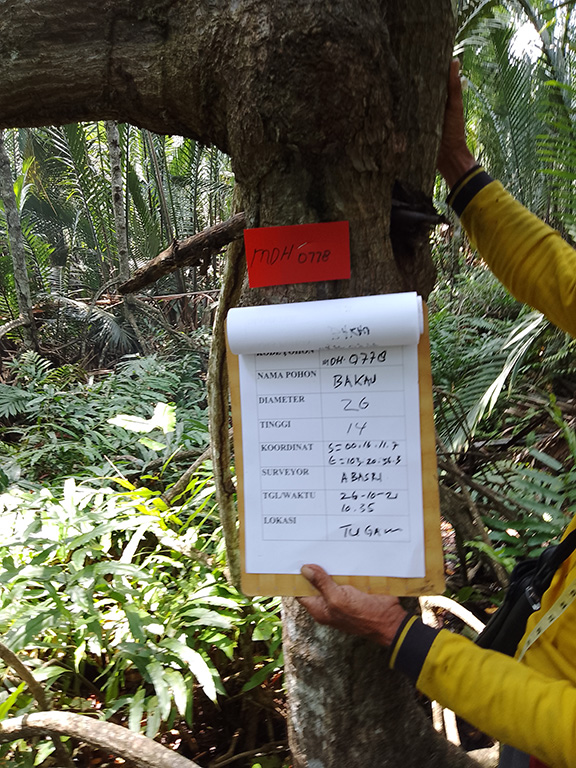 MDH 0778
KODE POHON MDH. 0778
NAMA POHON BAKAU
DIAMETER 26
TINGGI 14
KOORDINAT S=00.16.11.7
E=103.20.36.3
SURVEYOR ABASRI
TGL/WAKTU 26-10-21
10.35
LOKASI TUGAU